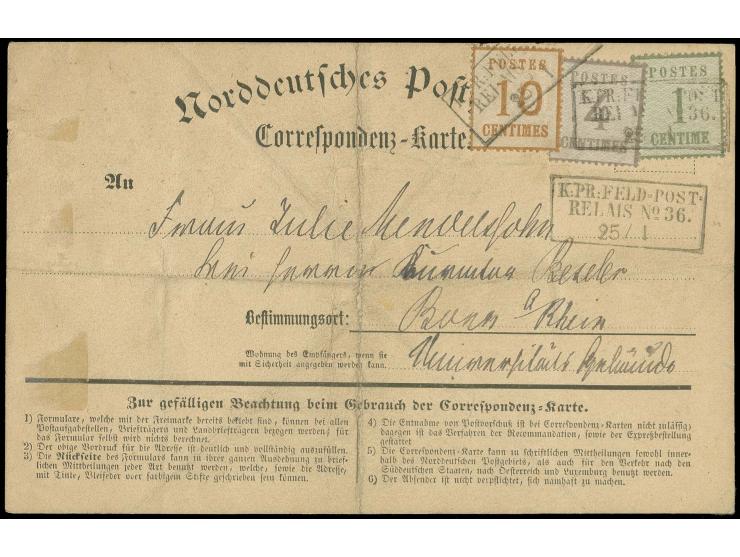 Norddeutsches Post
Correspondenz-Karte.
POSTES
10
CENTIMES
POSTES
4
CENTIMES
POSTES
1
CENTIME
K.PR:FELD-POST-
RELAIS No 36.
25/1
An
Frau Julie Mendelssohn
bei Herrn Curator Beseler
Bestimmungsort: Bonn a Rhein
Wohnung des Empfängers, wenn sie
mit Sicherheit angegeben werden kann.
Universitäts Gebäude
Zur gefälligen Beachtung beim Gebrauch der Correspondenz-Karte.
1) Formulare, welche mit der Freimarke bereits beklebt sind, können bei allen
Postaufgabestellen, Briefträgern und Landbriefträgern bezogen werden; für
das Formular selbst wird nichts berechnet.
2) Der obige Vordruck für die Adresse ist deutlich und vollständig auszufüllen.
3) Die Rückseite des Formulars kann in ihrer ganzen Ausdehnung zu brief-
lichen Mittheilungen jeder Art benutzt werden, welche, sowie die Adresse,
mit Tinte, Bleifeder oder farbigem Stifte geschrieben sein können.
4) Die Entnahme von Postvorschuß ist bei Correspondenz-Karten nicht zulässig;
dagegen ist das Verfahren der Recommandation, sowie der Expreßbestellung
gestattet
5) Die Correspondenz-Karte kann zu schriftlichen Mittheilungen sowohl inner-
halb des Norddeutschen Postgebiets, als auch für den Verkehr nach den
Süddeutschen Staaten, nach Oesterreich und Luxemburg benutzt werden.
6) Der Absender ist nicht verpflichtet, sich namhaft zu machen.